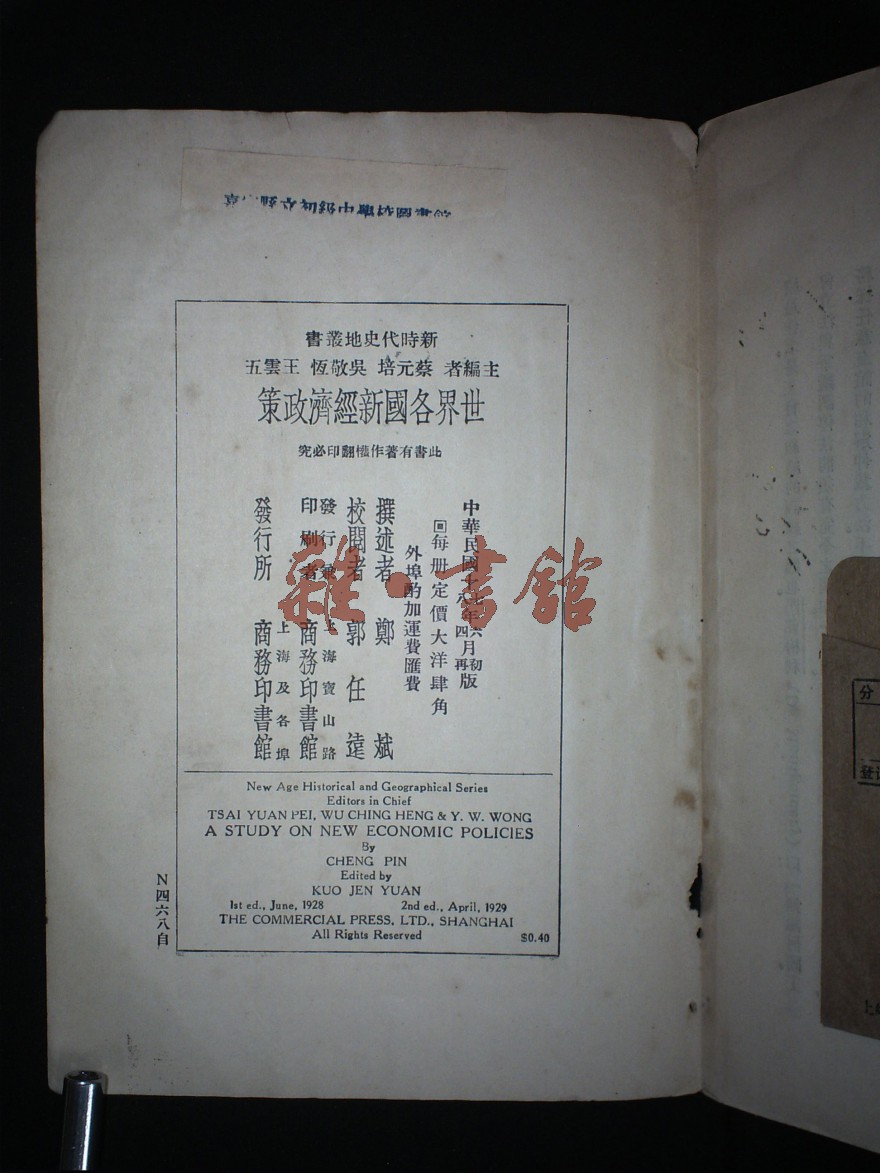 新時代史地叢書
主編者 蔡元培 吳敬恆 王雲五
世界各國新經濟政策
此書有著作權翻印必究
中華民國十七年六月初版
八年四月再版
回每册定價大洋肆角
外埠酌加運費匯費
撰述者 鄭斌
校閱者 郭任遠
發行兼印刷者 上海寶山路 商務印書館
發行所 上海及各埠 商務印書館
雜·書館
New Age Historical and Geographical Series
Editors in Chief
TSAI YUAN PEI, WU CHING HENG & Y. W. WONG
A STUDY ON NEW ECONOMIC POLICIES
By
CHENG PIN
Edited by
KUO JEN YUAN
1st ed., June, 1928 2nd ed., April, 1929
THE COMMERCIAL PRESS, LTD., SHANGHAI
All Rights Reserved $0.40
N四六八自
分
登